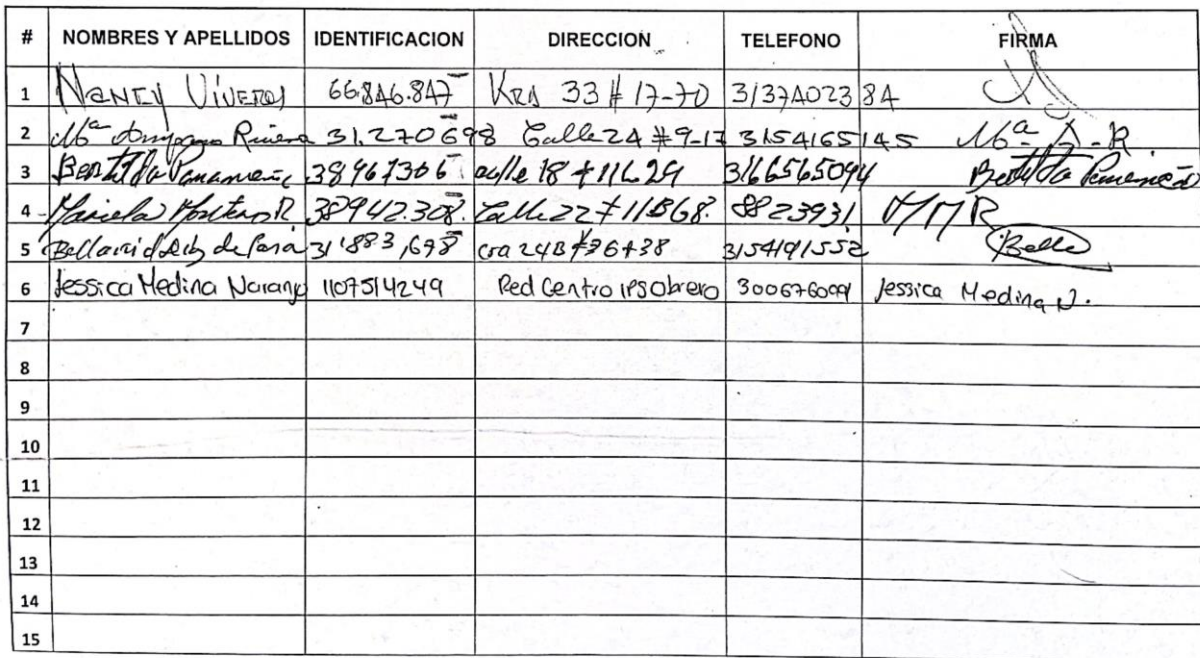 # NOMBRES Y APELLIDOS IDENTIFICACION DIRECCION TELEFONO FIRMA
1 Nancy Viveros 66.846.847 KRA 33 # 17-70 3137402384
2 Mª Amparo Rivera 31.270698 Calle 24 # 9-17 3154165145 Mª A-R.
3 Bertilda Panameño 38967306 calle 18 # 11L29 3166565094 Bertilda
4 Mariela Montero R 38942.308. Calle 22 # 11B68. 8823931 MMR
5 de 31'883,698 cra 24B #36+38 3154191552 Belle
6 Jessica Medina Naranjo 1107514249 Red Centro IPS Obrero 300676099 Jessica Medina N.
7
8
9
10
11
12
13
14
15